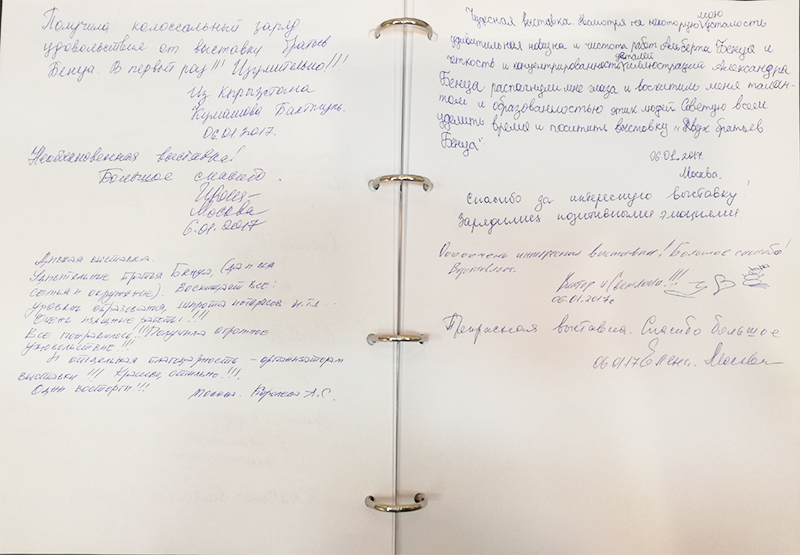 Получила колоссальный заряд
удовольствия от выставки братьев
Бенуа. В первый раз!!! Изумительно!!!
Из Кыргызстана
06.01.2017.
Необыкновенная выставка!
Большое спасибо.
Москва
6.01.2017
выставка.
братья Бенуа, (да и вся
семья и окружение). Восхищает всё:
уровень образования, широта интересов и т.д...
Очень изящные работы!!!!
Все понравилось!!! Получила огромное
удовольствие!!!
И отдельная благодарность – организаторам
выставки!!! Красиво, стильно!!!.
Одни восторги!!! Москва. А.С.
Чудесная выставка. Несмотря на некоторую мою усталость
удивительная новизна и чистота работ Альберта Бенуа и
четкость и концентрированность деталей иллюстраций Александра
Бенуа распахнули мне глаза и восхитили меня талан-
том и образованностью этих людей. Советую всем
уделить время и посетить выставку "Двух братьев
Бенуа"
06.01.2017.
Москва.
Спасибо за интересную выставку!
Зарядились позитивными эмоциями.
Оооочень интересная выставка! Большое спасибо!
Виктор и !!!
06.01.2017г.
Прекрасная выставка. Спасибо большое
06.01.17 Елена. Москва